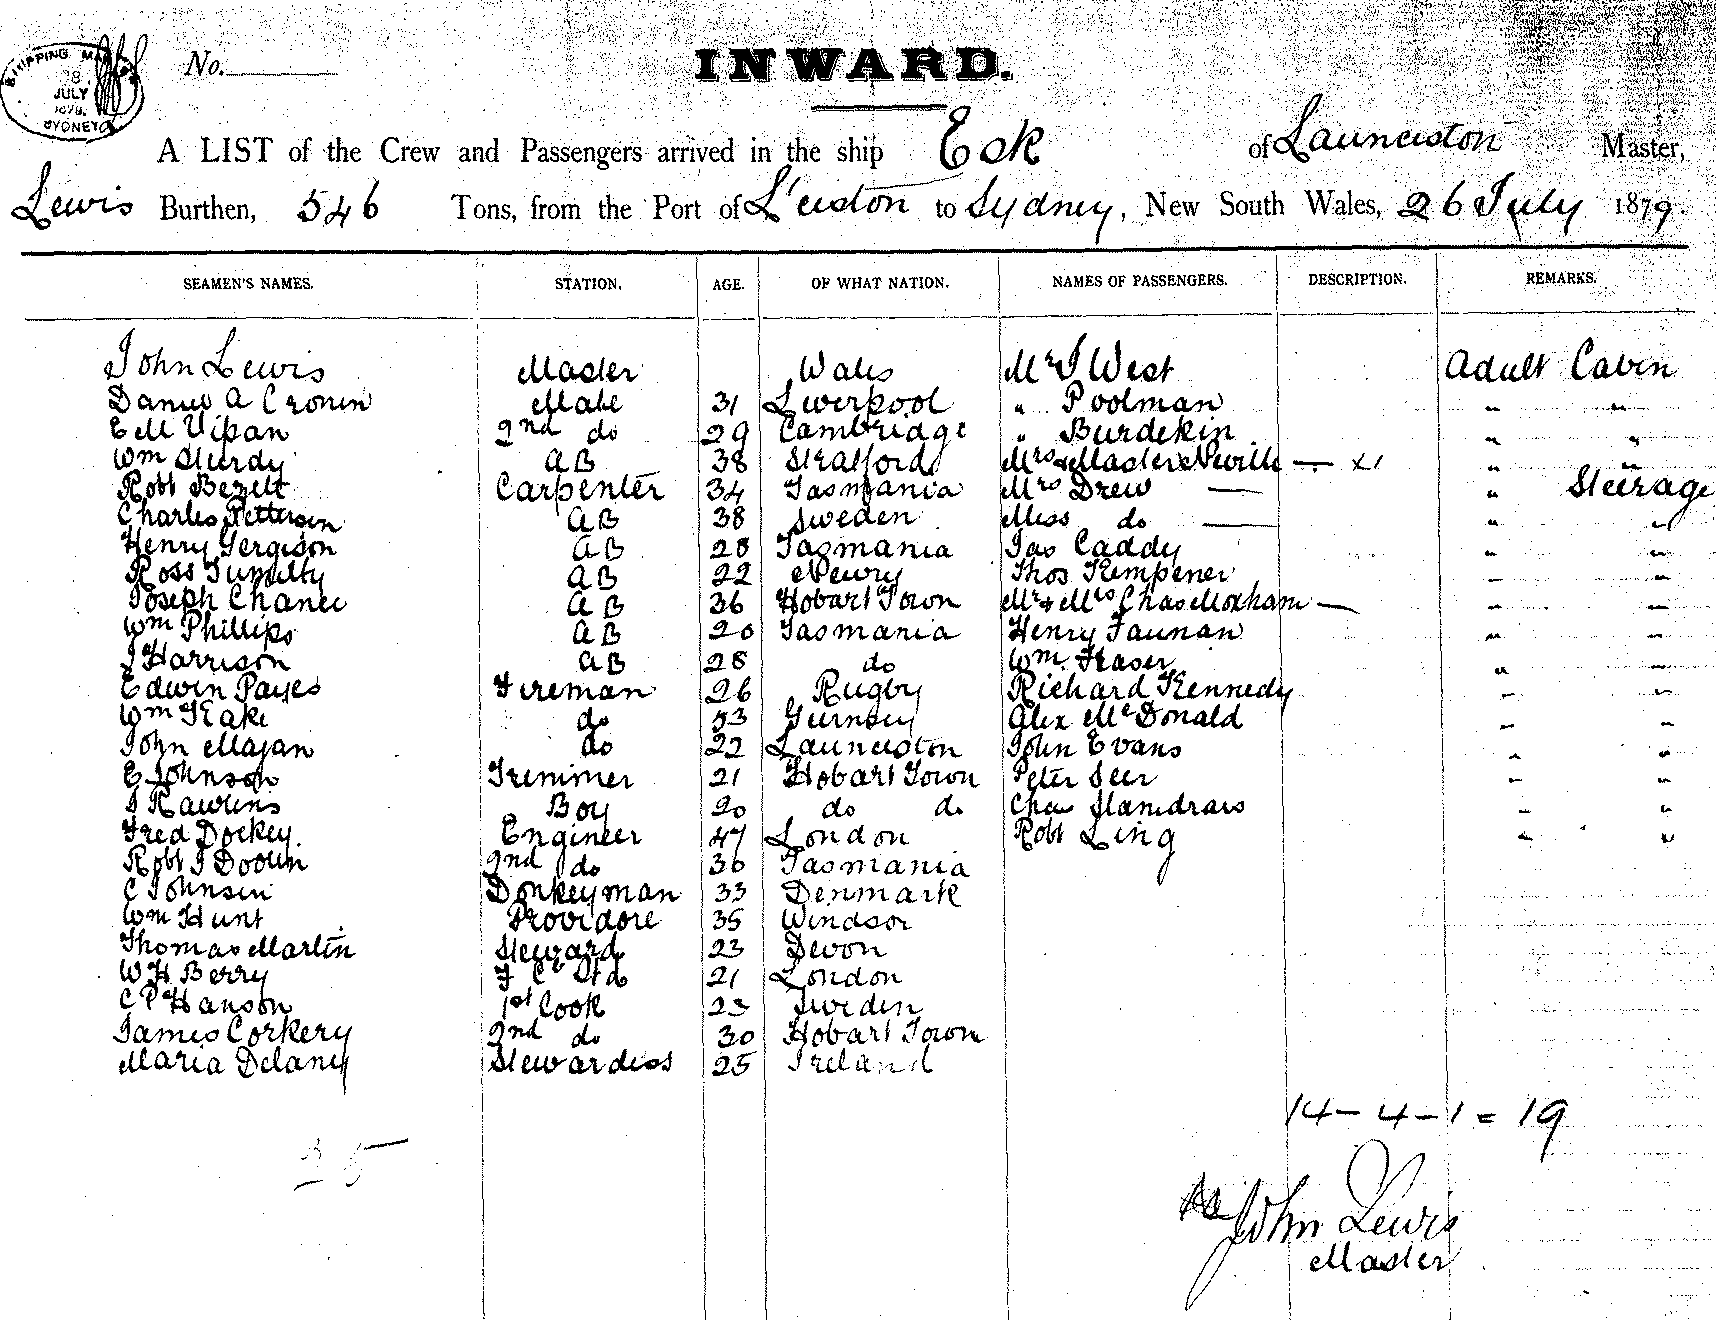 SHIPPING MASTER
JULY
1879.
SYDNEY
No.
INWARD.
A LIST of the Crew and Passengers arrived in the ship Esk of Launceston Master,
Lewis Burthen, 546 Tons, from the Port of L'ceston to Sydney, New South Wales, 26 July 1879.
SEAMEN'S NAMES. STATION. AGE. OF WHAT NATION. NAMES OF PASSENGERS. DESCRIPTION. REMARKS.
John Lewis Master Wales Mr J West Adult Cabin
Daniel A Cronin Mate 31 Liverpool " Poolman " "
E M Vipan 2nd do 29 Cambridge " Burdekin " "
Wm Sturdy AB 38 Stratford Mrs & Master Neville — x1 " "
Robt Bezett Carpenter 34 Tasmania Mrs Drew — " Steerage
Charles Pettersen AB 38 Sweden Miss do — " "
Henry Fergison AB 28 Tasmania Jas Caddy " "
Ross Tumilty AB 22 Newry Thos Kempener " "
Joseph Chance AB 36 Hobart Town Mr & Mrs Chas Moxham — " "
Wm Phillips AB 20 Tasmania Henry Faunan " "
J Harrison AB 28 do Wm Fraser " "
Edwin Payes Fireman 26 Rugby Richard Kennedy " "
Wm Keake do 53 Gurnsey Alex McDonald " "
John Magan do 22 Launceston John Evans " "
E Johnson Trimmer 21 Hobart Town Peter Seer " "
J Rawlins Boy 20 do do Chas " "
Fred Dockey Engineer 47 London Robt Ling " "
Robt J Doolin 2nd do 30 Tasmania
C Johnsen Donkeyman 33 Denmark
Wm Hunt Providore 35 Windsor
Thomas Martin Steward 23 Devon
W H Berry F C Std 21 London
C P Hanson 1st Cook 23 Sweden
James Corkery 2nd do 30 Hobart Town
Maria Delaney Stewardess 25 Ireland
14 — 4 — 1 = 19
25
John Lewis
Master